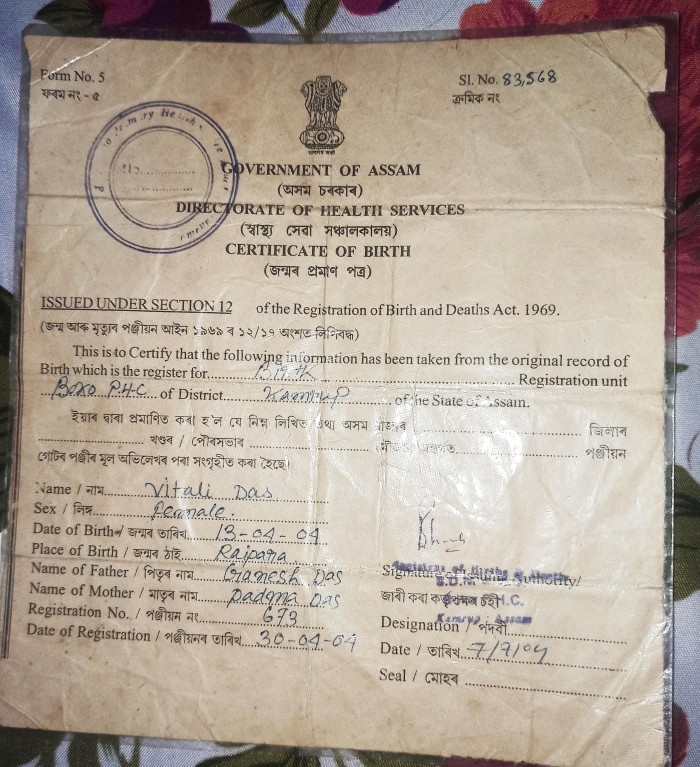 Form No. 5
Sl. No. 83,568
ফৰম নং - ৫
ক্ৰমিক নং
GOVERNMENT OF ASSAM
(অসম চৰকাৰ)
DIRECTORATE OF HEALTH SERVICES
(স্বাস্থ্য সেৱা সঞ্চালকালয়)
CERTIFICATE OF BIRTH
(জন্মৰ প্ৰমাণ পত্ৰ)
ISSUED UNDER SECTION 12 of the Registration of Birth and Deaths Act. 1969.
(জন্ম আৰু মৃত্যুৰ পঞ্জীয়ন আইন ১৯৬৯ ৰ ১২/১৭ অংশত লিপিবদ্ধ)
This is to Certify that the following information has been taken from the original record of
Birth which is the register for Birth Registration unit
Boko PHC of District Kamrup of the State of Assam.
ইয়াৰ দ্বাৰা প্ৰমাণিত কৰা হ'ল যে নিম্ন লিখিত তথ্য অসম জিলাৰ
খণ্ডৰ / পৌৰসভাৰ পঞ্জীয়ন
গোটৰ পঞ্জীৰ মূল অভিলেখৰ পৰা সংগৃহীত কৰা হৈছে।
Name / নাম Vitali Das
Sex / লিঙ্গ Female.
Date of Birth / জন্মৰ তাৰিখ 13-04-04
Place of Birth / জন্মৰ ঠাই Rajpara
Name of Father / পিতৃৰ নাম Ganesh Das
Name of Mother / মাতৃৰ নাম Padma Das
Registration No. / পঞ্জীয়ন নং 673
Date of Registration / পঞ্জীয়নৰ তাৰিখ 30-04-04
Registrar of Births & Deaths
Signature Authority/
জাৰী কৰা চহী
Kamrup, Assam
Designation / পদবী
Date / তাৰিখ 7/9/04
Seal / মোহৰ